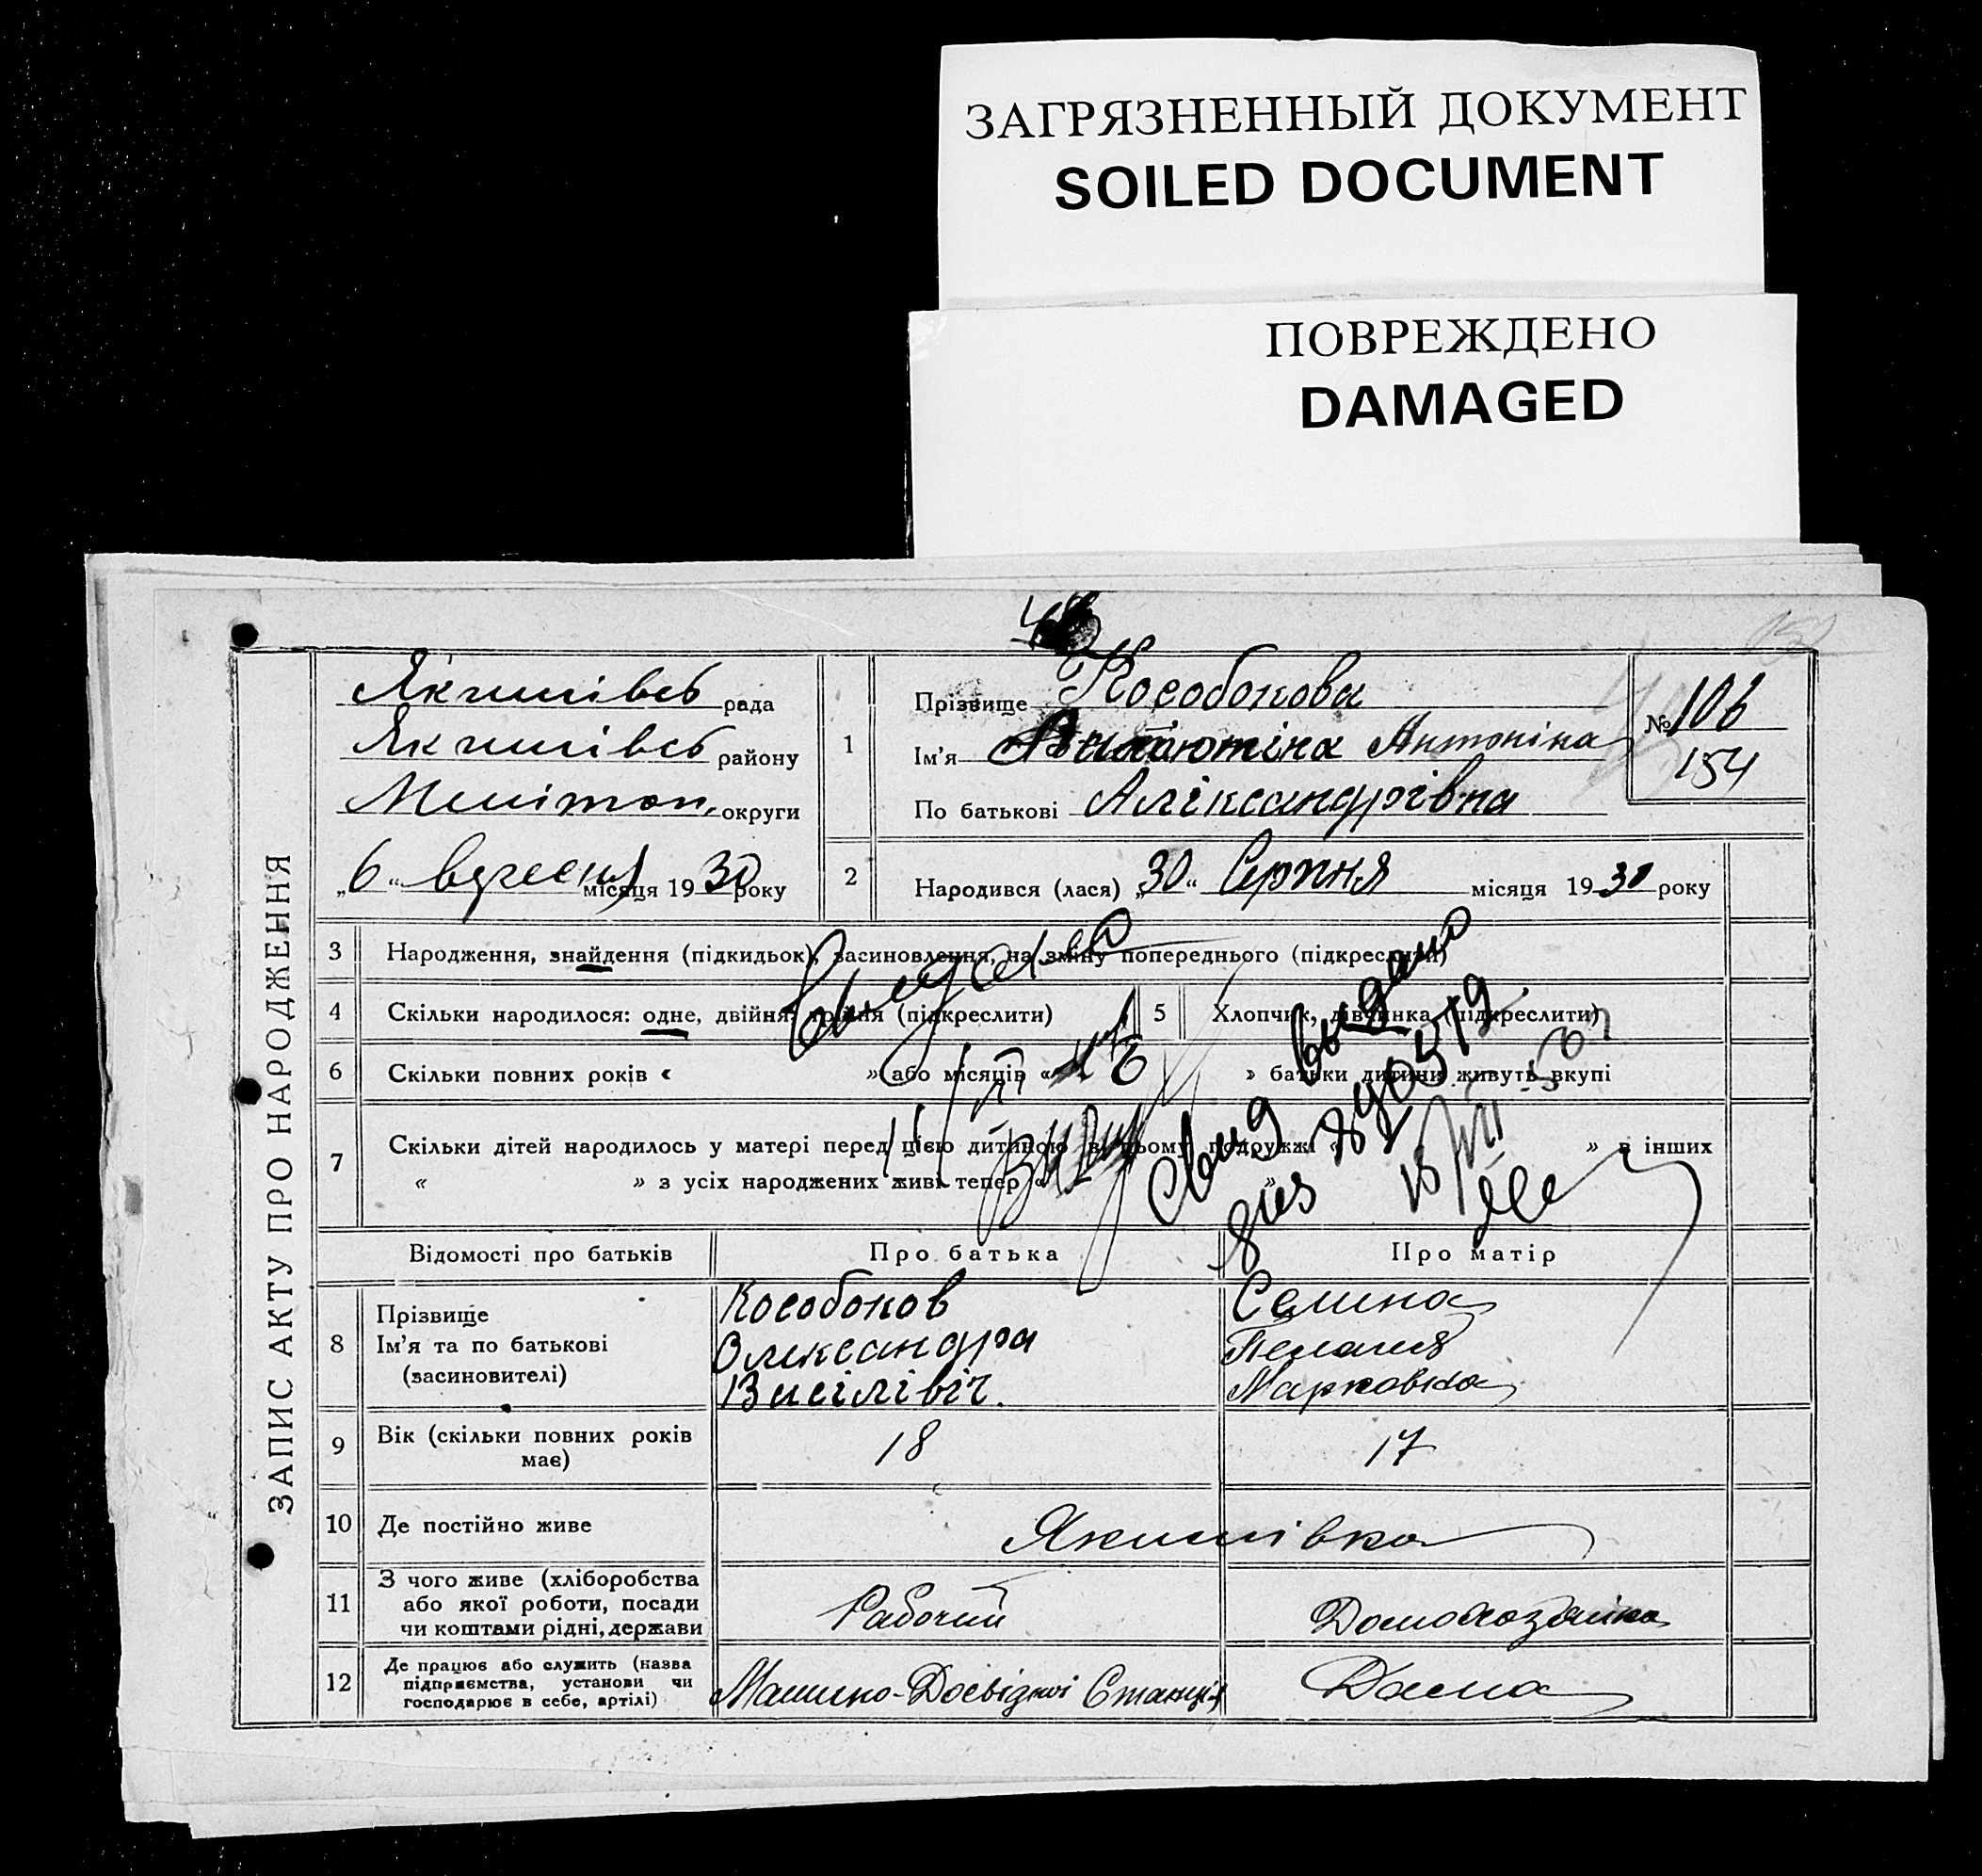 ЗАГРЯЗНЕННЫЙ ДОКУМЕНТ
SOILED DOCUMENT
ПОВРЕЖДЕНО
DAMAGED
ЗАПИС АКТУ ПРО НАРОДЖЕННЯ
рада
району
Мелітоп. округи
„6“ вересня місяця 1930 року
1
Прізвище Кособокова
Ім'я Антоніна
По батькові Аліксандрівна
№ 106
154
2
Народився (лася) „30“ Серпня місяця 1930 року
3 Народження, знайдення (підкидьок), засиновлення, на зміну попереднього (підкреслити)
4 Скільки народилося: одне, двійня, трійня (підкреслити)
5 Хлопчик, дівчинка (підкреслити)
6 Скільки повних років « » або місяців « » батьки дитини живуть вкупі
7 Скільки дітей народилось у матері перед цією дитиною в цьому подружжі « » в інших
« » з усіх народжених живі тепер « »
Свид выдано
Відомості про батьків Про батька Про матір
8 Прізвище Кособоков Селина
Ім'я та по батькові Олександра Пелагея
(засиновителі) Васілівіч. Марковна
9 Вік (скільки повних років має) 18 17
10 Де постійно живе Якимівка
11 З чого живе (хліборобства або якої роботи, посади чи коштами рідні, держави Рабочий Домохозяйка
12 Де працює або служить (назва підприємства, установи чи господарює в себе, артілі) Машино-Досвідної Станції Дома